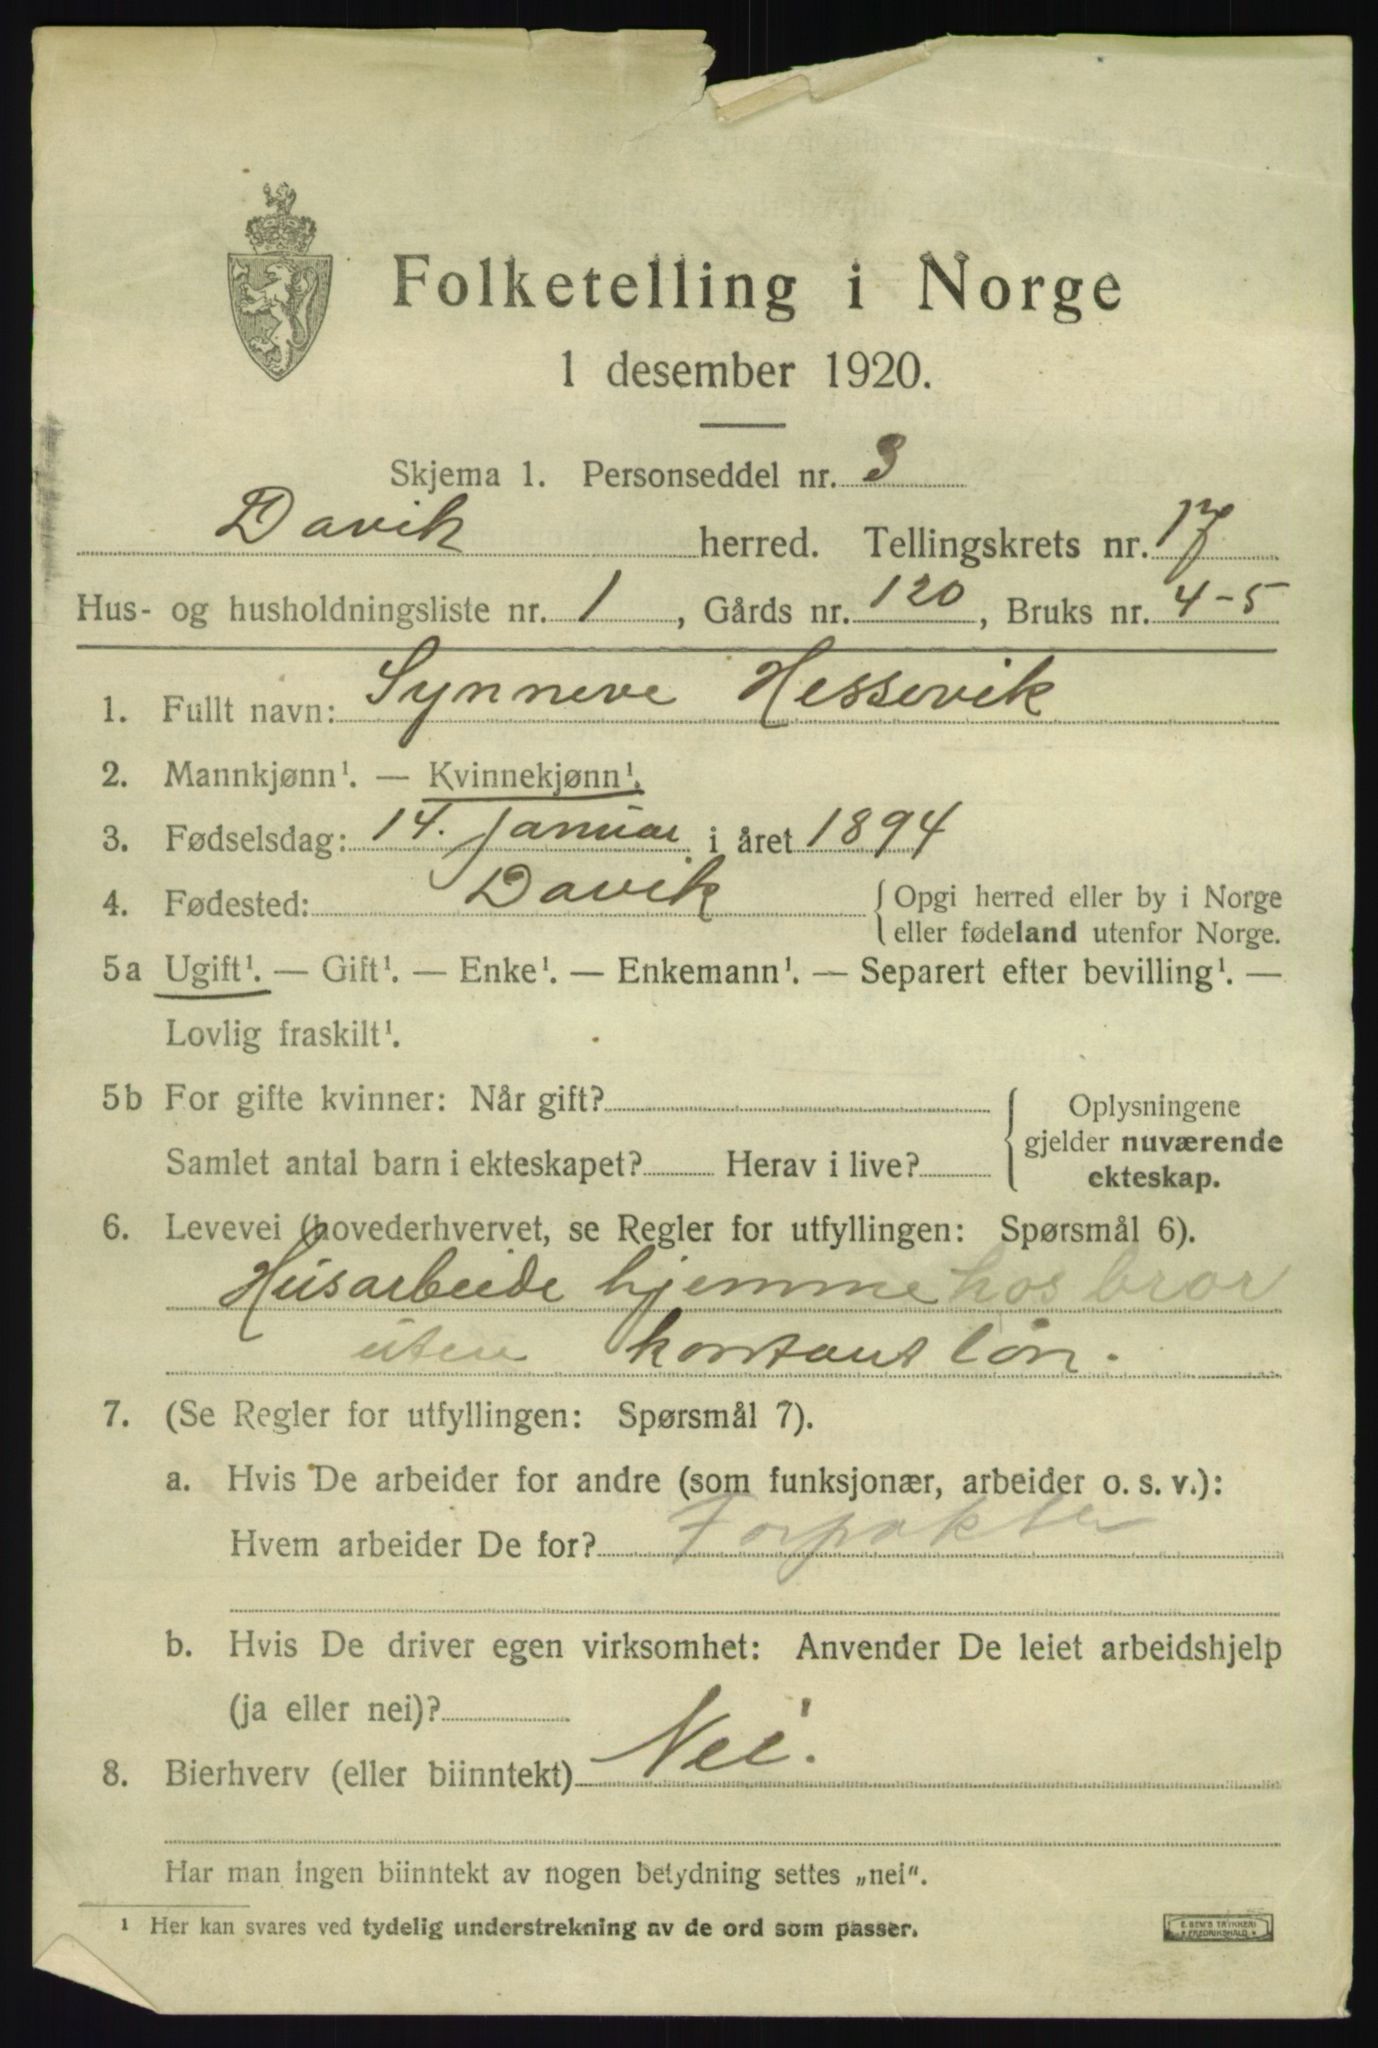 Folketelling i Norge
1 desember 1920.
Skjema 1. Personseddel nr. 3
Davik herred. Tellingskrets nr. 17
Hus- og husholdningsliste nr. 1, Gårds nr. 120, Bruks nr. 4-5
1. Fullt navn: Synneve Hessevik
2. Mannkjønn¹. — Kvinnekjønn¹.
3. Fødselsdag: 14. januar i året 1894
4. Fødested: Davik { Opgi herred eller by i Norge
eller fødeland utenfor Norge.
5a Ugift¹. — Gift¹. — Enke¹. — Enkemann¹. — Separert efter bevilling¹. —
Lovlig fraskilt¹.
5b For gifte kvinner: Når gift? { Oplysningene
gjelder nuværende
Samlet antal barn i ekteskapet? Herav i live?
ekteskap.
6. Levevei (hovederhvervet, se Regler for utfyllingen: Spørsmål 6).
Husarbeide hjemme hos bror
uten kontant løn.
7. (Se Regler for utfyllingen: Spørsmål 7).
a. Hvis De arbeider for andre (som funksjonær, arbeider o. s. v.):
Hvem arbeider De for? Forpakter
b. Hvis De driver egen virksomhet: Anvender De leiet arbeidshjelp
(ja eller nei)?
8. Bierhverv (eller biinntekt) Nei.
Har man ingen biinntekt av nogen betydning settes „nei“.
¹ Her kan svares ved tydelig understrekning av de ord som passer.
E. SEM'S TRYKKERI
FREDRIKSHALD